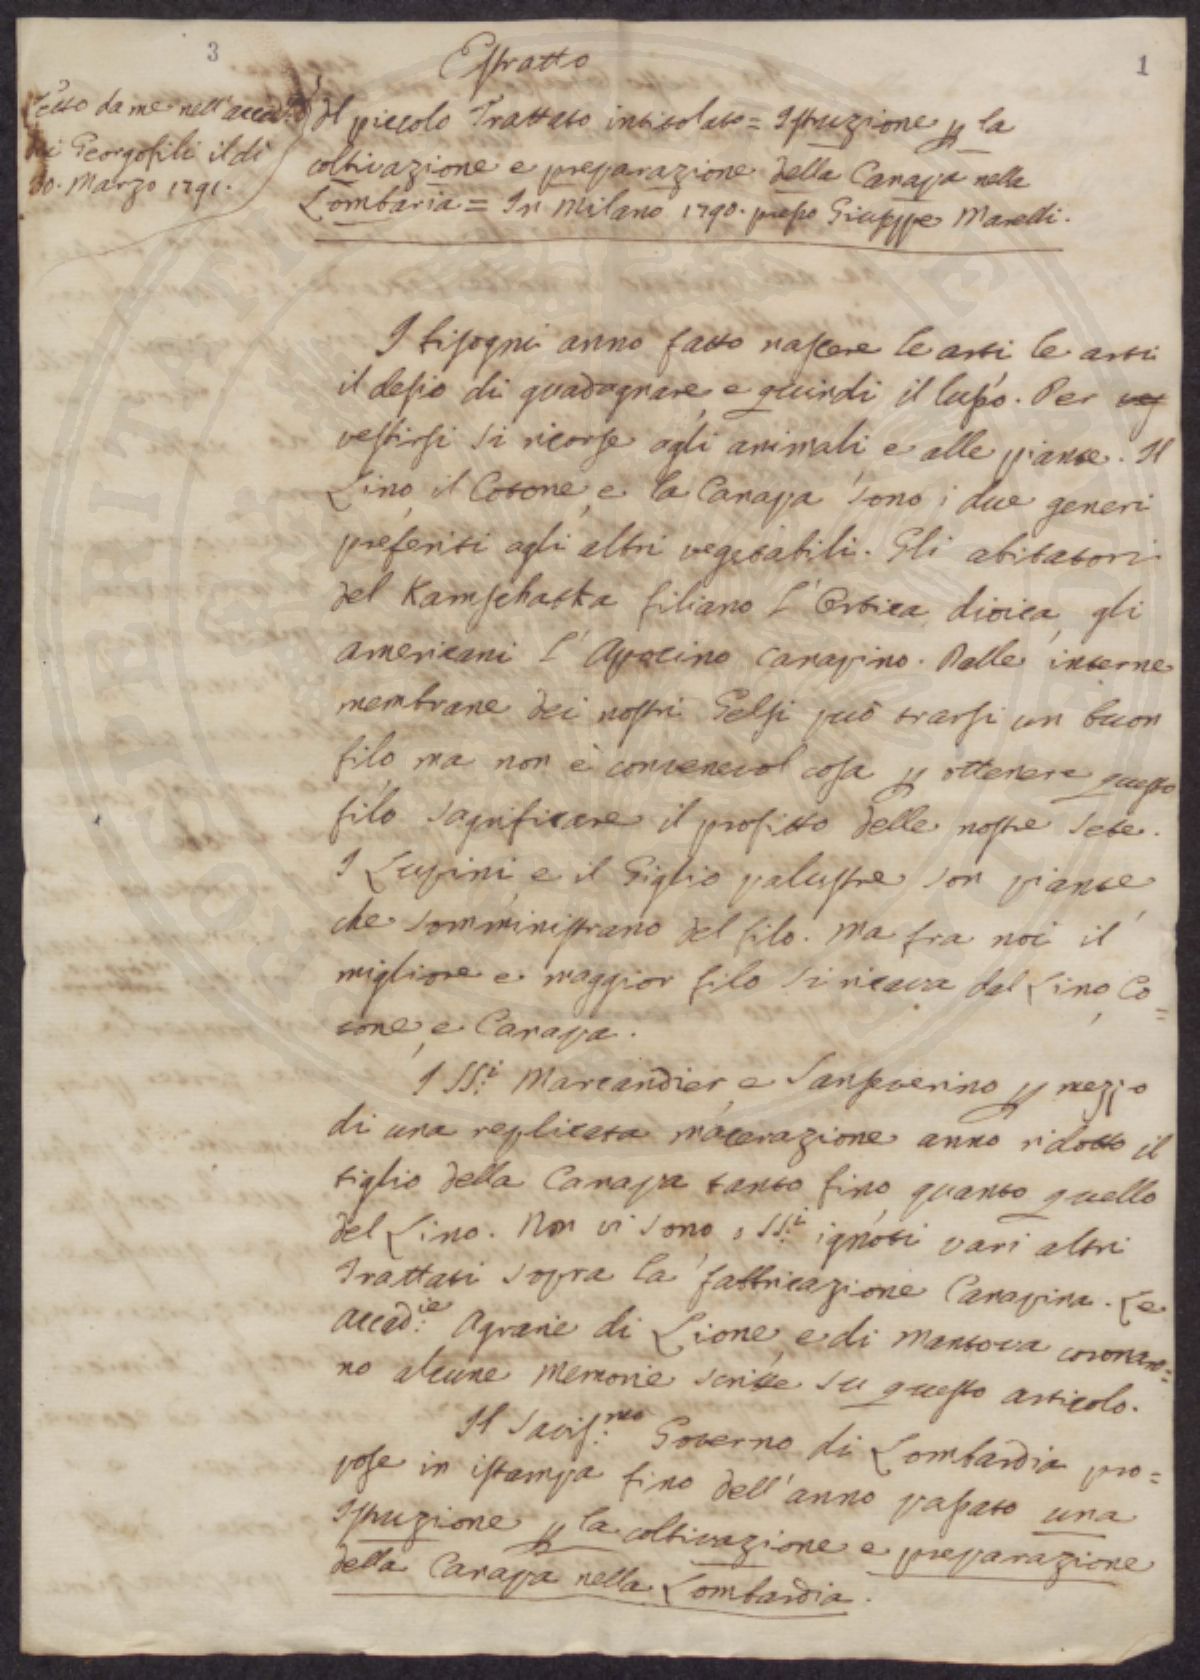 3
1
Estratto
Letto da me nell'accad.
dei Georgofili il dì
30. Marzo 1791.
Del piccolo Trattato intitolato = Istruzione p la
coltivazione e preparazione della Canapa nella
Lombaria = In Milano 1790. presso Giuseppe Marelli.
I bisogni anno fatto nascere le arti le arti
il desio di guadagnare, e quindi il lusso. Per ves
vestirsi si ricorse agli animali e alle piante. Il
Lino, il Cotone, e la Canapa sono i due generi
preferiti agli altri vegetabili. Gli abitatori
del Kamschatka filiano l'Ortica dioica, gli
americani l'Apocino canapino. Dalle interne
membrane dei nostri Gelsi può trarsi un buon
filo, ma non è convenevol cosa p ottenere questo
filo sagrificare il profitto delle nostre sete.
I Lupini, e il Giglio palustre son piante,
che somministrano del filo. Ma fra noi il
migliore e maggior filo si ricava dal Lino, Co=
tone, e Canapa.
I SS.i Marcandier, e Sanseverino p mezzo
di una replicata macerazione anno ridotto il
tiglio della Canapa tanto fino, quanto quello
del Lino. Non vi sono, o SS.i ignoti vari altri
Trattati sopra la fabbricazione Canapina. Le
Accad.ie Agrarie di Lione, e di Mantova coronaro=
no alcune Memorie scritte su questo articolo.
Il Savis.mo Governo di Lombardia pro=
pose in istampa fino dell'anno passato una
Istruzione p la coltivazione e preparazione
della Canapa nella Lombardia.